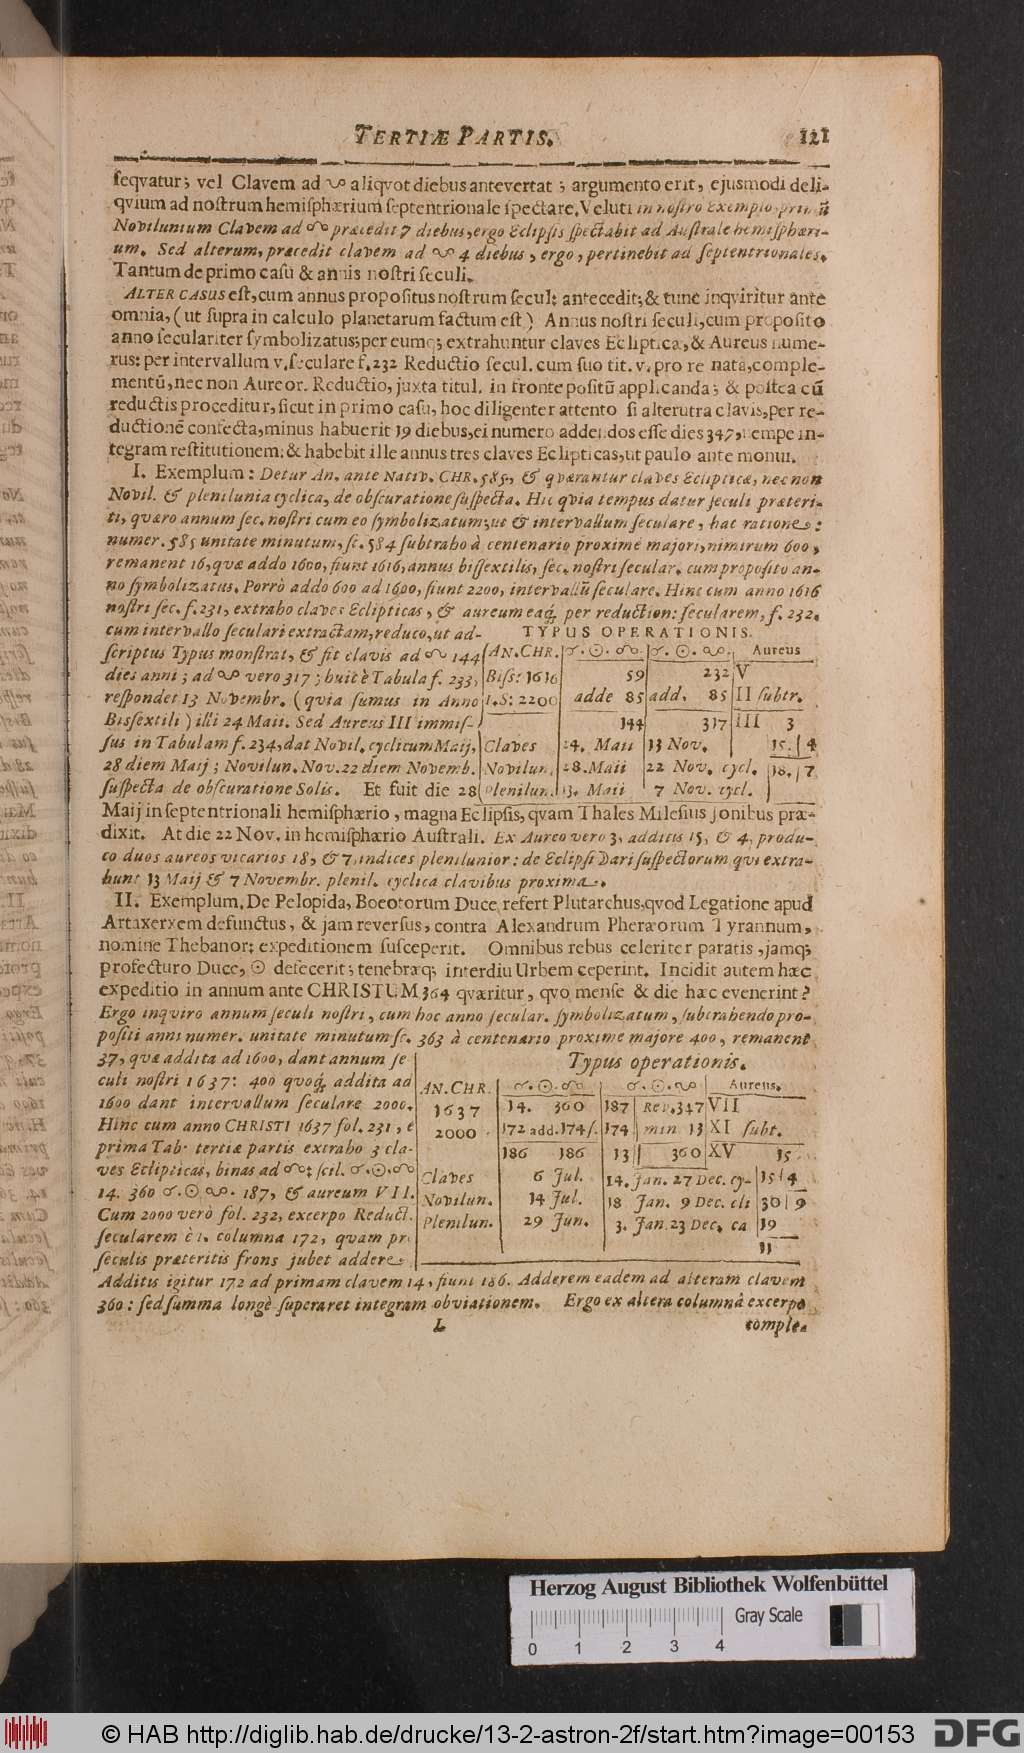 TERTIÆ PARTIS. 121
ſeqvatur; vel Clavem ad ☋ aliqvot diebus antevertat ; argumento erit, ejusmodi deli-
qvium ad noſtrum hemiſphærium ſeptentrionale ſpectare. Veluti in noſtro Exemplo primũ
Novilunium Clavem ad ☊ præcedit 7 diebus, ergo Eclipſis ſpectabit ad Auſtrale hemiſphæri-
um. Sed alterum, præcedit clavem ad ☋ 4 diebus, ergo, pertinebit ad ſeptentrionales.
Tantum de primo caſu & annis noſtri ſeculi.
ALTER CASUS eſt, cum annus propoſitus noſtrum ſecul: antecedit; & tunc inqviritur ante
omnia, (ut ſupra in calculo planetarum factum eſt) Annus noſtri ſeculi, cum propoſito
anno ſeculariter ſymbolizatus; per eumq; extrahuntur claves Ecliptica, & Aureus nume-
rus: per intervallum v. ſeculare f. 232 Reductio ſecul. cum ſuo tit. v. pro re nata, comple-
mentũ, nec non Aureor. Reductio, juxta titul. in fronte poſitũ applicanda; & poſtea cũ
reductis proceditur, ſicut in primo caſu, hoc diligenter attento ſi alterutra clavis, per re-
ductionẽ confecta, minus habuerit 19 diebus, ei numero addendos eſſe dies 347, nempe in-
tegram reſtitutionem: & habebit ille annus tres claves Eclipticas, ut paulo ante monui.
I. Exemplum: Detur An. ante NATIV. CHR. 585, & qværantur claves Eclipticæ, nec non
Novil. & plenilunia cyclica, de obſcuratione ſuſpecta. Hic qvia tempus datur ſeculi præteri-
ti, qværo annum ſec. noſtri cum eo ſymbolizatum; ut & intervallum ſeculare, hac ratione:
numer. 585 unitate minutum, ſc. 584 ſubtraho à centenario proximè majori, nimirum 600,
remanent 16, quæ addo 1600, fiunt 1616, annus biſſextilis, ſec. noſtri ſecular. cum propoſito an-
no ſymbolizatus. Porrò addo 600 ad 1600, fiunt 2200, intervallũ ſeculare. Hinc cum anno 1616
noſtri ſec. f. 231, extraho claves Eclipticas, & aureum eaq; per reduction: ſecularem, f. 232.
cum intervallo ſeculari extractam, reduco, ut ad- TYPUS OPERATIONIS.
ſcriptus Typus monſtrat, & fit clavis ad ☊ 144 AN. CHR. ☌. ☉. ☊. ☌. ☉. ☋. Aureus
dies anni; ad ☋ vero 317; huic è Tabula f. 233, Biſſ: 1616 59 232 V
reſpondet 13 Novembr. (qvia ſumus in Anno I. S: 2200 adde 85 add. 85 II ſubtr.
Bisſextili) illi 24 Maii. Sed Aureus III immiſ- 144 317 III 3
ſus in Tabulam f. 234, dat Novil. cyclicum Maij, Claves 24. Maii 13 Nov. 15. 4
28 diem Maij; Novilun. Nov. 22 diem Novemb. Novilun. 28. Maii 22 Nov. cycl. 18. 7
ſuſpecta de obſcuratione Solis. Et fuit die 28 plenilun. 13. Maii 7 Nov. cycl.
Maij in ſeptentrionali hemiſphærio, magna Eclipſis, qvam Thales Mileſius Jonibus præ-
dixit. At die 22 Nov. in hemiſphærio Auſtrali. Ex Aureo vero 3, additis 15, & 4, produ-
co duos aureos vicarios 18, & 7, indices plenilunior: de Eclipſi Dari ſuſpectorum qvi extra-
hunt 13 Maij & 7 Novembr. plenil. cyclica clavibus proxima.
II. Exemplum. De Pelopida, Boeotorum Duce refert Plutarchus, qvod Legatione apud
Artaxerxem defunctus, & jam reverſus, contra Alexandrum Pheræorum Tyrannum,
nomine Thebanor: expeditionem ſuſceperit. Omnibus rebus celeriter paratis, jamq;
profecturo Duce, ☉ defecerit; tenebræq; interdiu Urbem ceperint. Incidit autem hæc
expeditio in annum ante CHRISTUM 364 qværitur, qvo menſe & die hæc evenerint?
Ergo inquiro annum ſeculi noſtri, cum hoc anno ſecular. ſymbolizatum, ſubtrahendo pro-
poſiti anni numer. unitate minutum ſc. 363 à centenario proxime majore 400, remanent
37, quæ addita ad 1600, dant annum ſe Typus operationis.
culi noſtri 1637: 400 quoq; addita ad AN. CHR. ☌. ☉. ☊ ☌. ☉. ☋ Aureus.
1600 dant intervallum ſeculare 2000. 1637 14. 360 187 Rev. 347 VII
Hinc cum anno CHRISTI 1637 fol. 231, è 2000 172 add. 174 ſ. 174 min 13 XI ſubt.
prima Tab. tertiæ partis extraho 3 cla- 186 186 13 360 XV 15
ves Eclipticas, binas ad ☊: ſcil. ☌. ☉. ☊ Claves 6 Jul. 14. Jan. 27 Dec. cy- 15 4
14. 360 ☌. ☉. ☋. 187, & aureum VII. Novilun. 14 Jul. 18 Jan. 9 Dec. cli 30 9
Cum 2000 verò fol. 232, excerpo Reduct. Plenilun. 29 Jun. 3. Jan. 23 Dec. ca 19
ſecularem è 1. columna 172, quam pro 11
ſeculis præteritis frons jubet addere
Additis igitur 172 ad primam clavem 14, fiunt 186. Adderem eadem ad alteram clavem
360: ſed ſumma longè ſuperaret integram obviationem. Ergo ex altera columnâ excerpo
L comple-
Herzog August Bibliothek Wolfenbüttel
Gray Scale
0 1 2 3 4
© HAB http://diglib.hab.de/drucke/13-2-astron-2f/start.htm?image=00153 DFG